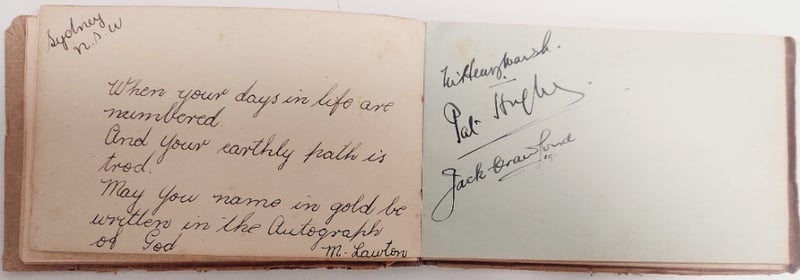 Sydney
N.S.W
When your days in life are
numbered.
And your earthly path is
trod.
May you name in gold be
written in the Autograph
of God
M- Lawton
Pat Hughes.
Jack Crawford